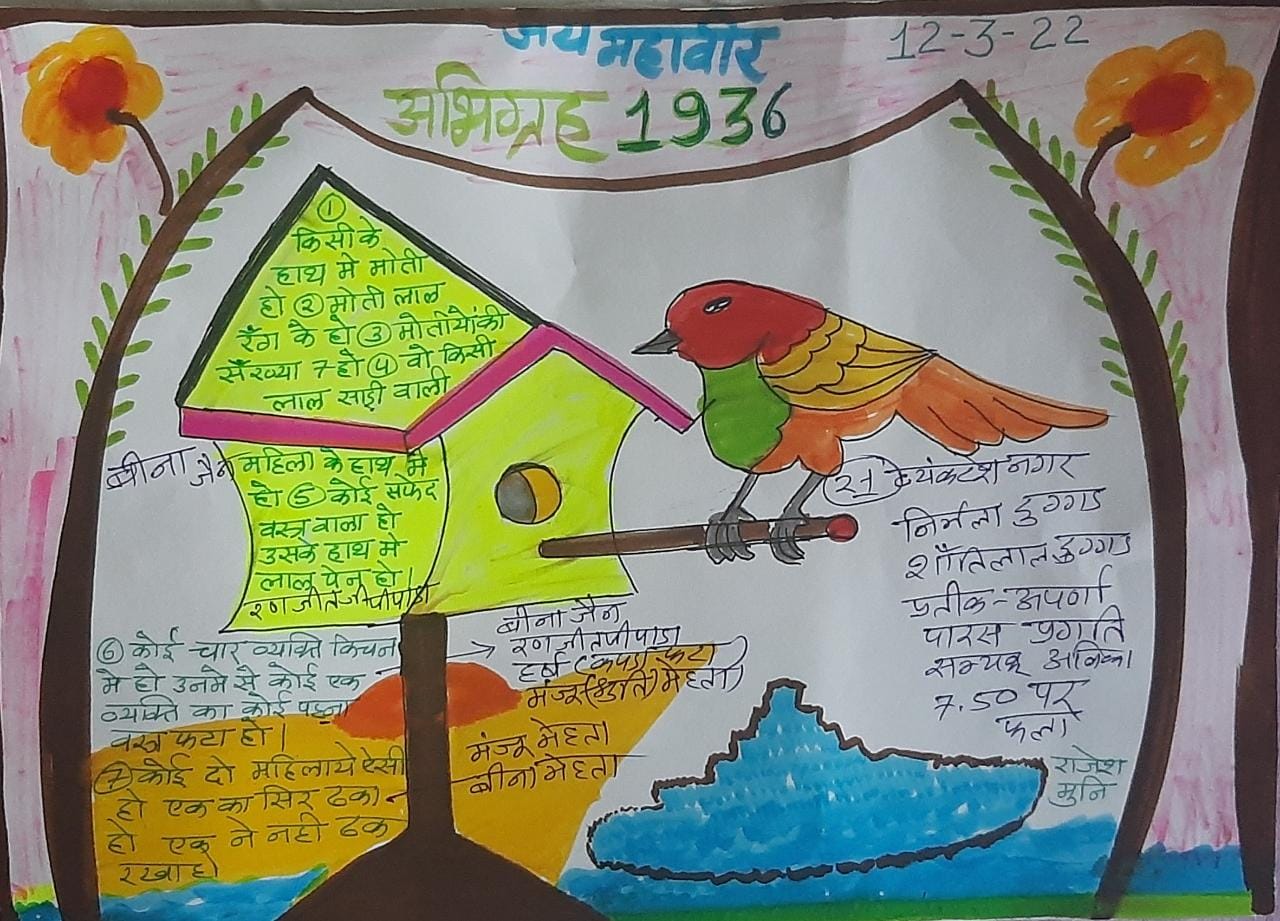 जय महावीर
12-3-22
अभिग्रह 1936
①
किसी के
हाथ मे मोती
हो ② मोती लाल
रँग के हो ③ मोतीयोंकी
सँख्या 7 हो ④ वो किसी
लाल साड़ी वाली
बीना जैन
महिला के हाथ मे
हो ⑤ कोई सफेद
वस्त्र वाला हो
उसके हाथ मे
लाल पेन हो।
रणजीतजी पीपाडा
⑥ कोई चार व्यक्ति किचन
मे हो उनमे से कोई एक
व्यक्ति का कोई पहना
वस्त्र फटा हो।
⑦ कोई दो महिलाये ऐसी
हो एक का सिर ढका
हो एक ने नही ढक
रखा हो
बीना जैन
रणजीत पीपाडा
हर्ष (कपडा फटा)
मंजू मेहता
मंजू मेहता
बीना मेहता
21 वेंयंकटेश नगर
निर्मला डुग्गड
शाँतिलाल डुग्गड
प्रतीक-अपर्णा
पारस प्रगति
सम्यक्
7.50 पर
फला
राजेश
मुनि